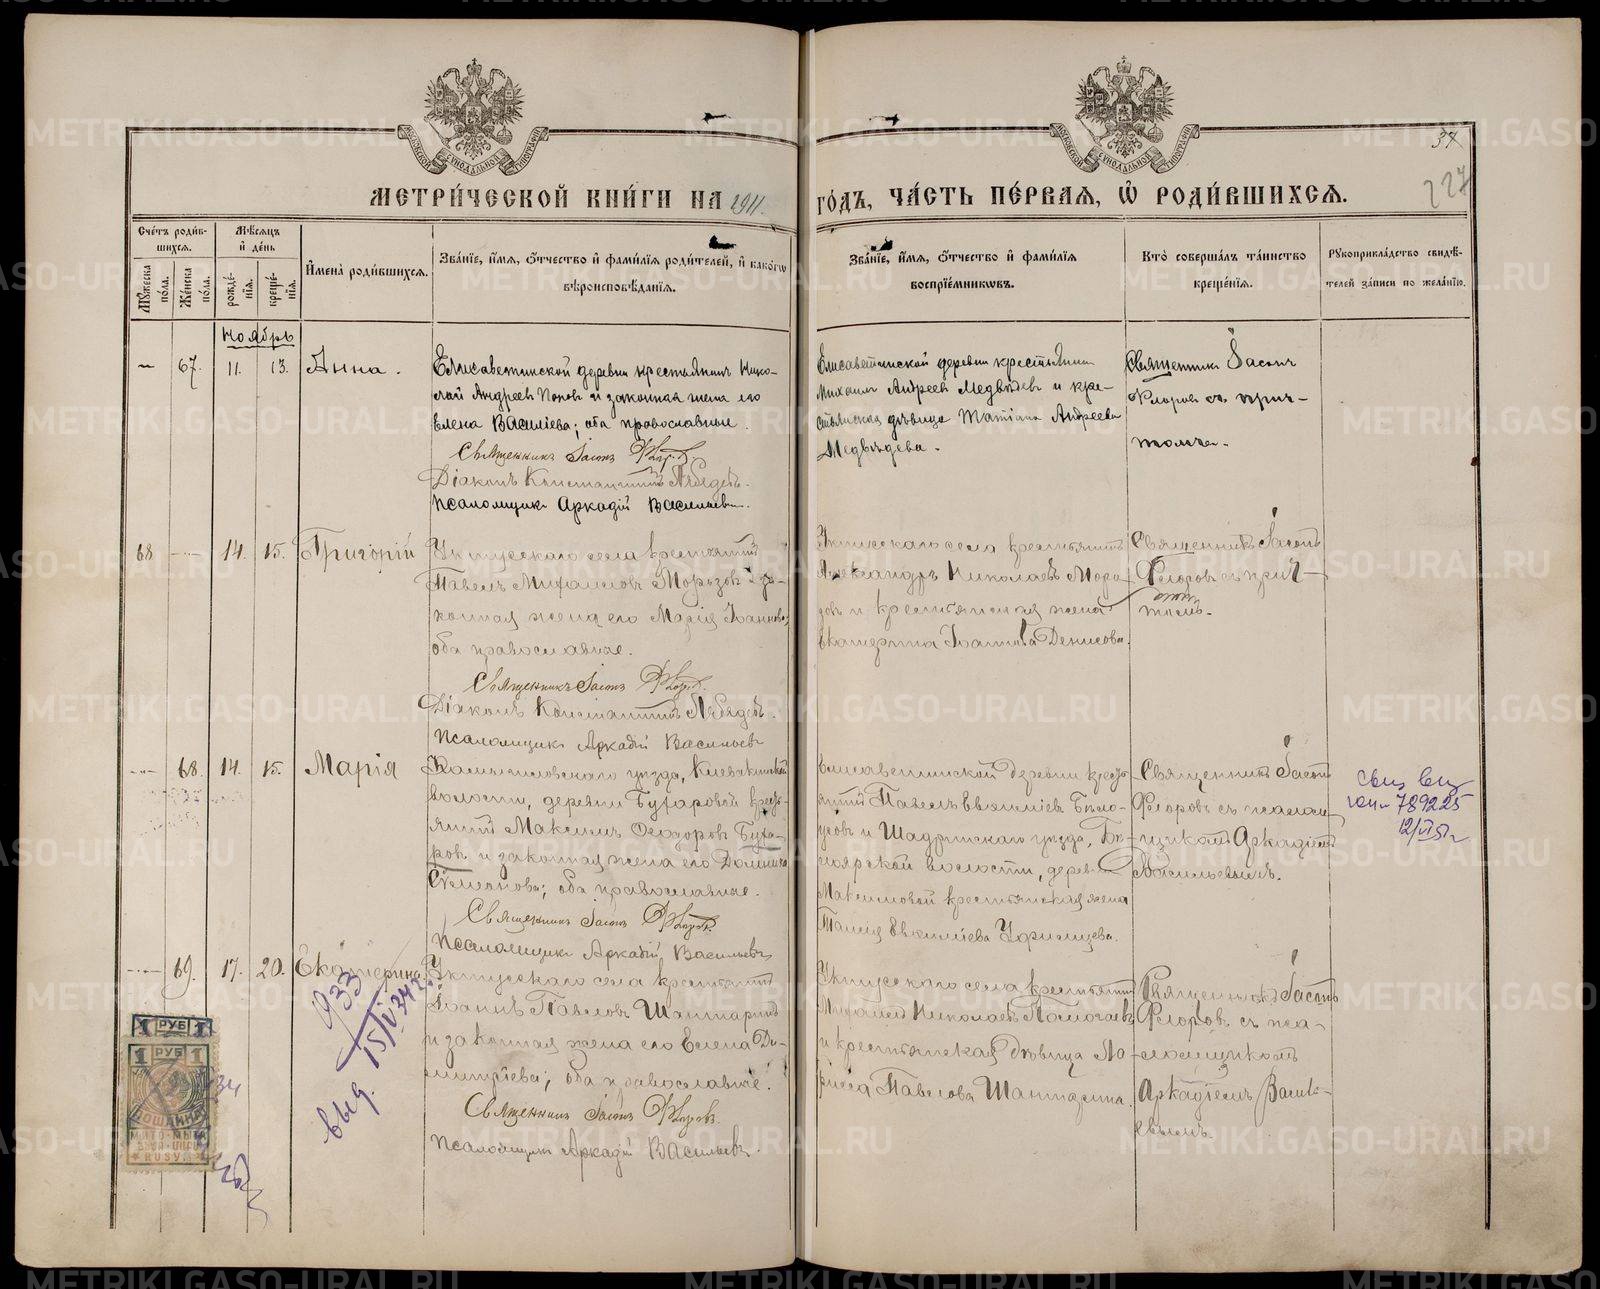 МЕТРИ́ЧЕСКОЙ КНИ́ГИ НА 1911
ГО́ДЪ, ЧА́СТЬ ПЕ́РВАЯ, Ѽ РОДИ́ВШИХСЯ.
37
227
Сче́тъ роди́в-
шихся.
Мѣ́сяцъ
и҆ де́нь
Мꙋ́жеска
по́ла.
Же́нска
по́ла.
рожде́-
нїя.
креще́-
нїя.
И҆мена̀ роди́вшихся.
Зва́нїе, и҆́мя, ѻ҆́тчество и҆ фами́лїя роди́телей, и҆ како́гѡ
вѣроисповѣ́данїя.
Зва́нїе, и҆́мя, ѻ҆́тчество и҆ фами́лїя
воспрїе́мникѡвъ.
Кто̀ соверша́лъ та́инство
креще́нїя.
Рꙋкоприкла́дство свидѣ́-
телей за́писи по жела́нїю.
Ноябрь
67. 11. 13. Анна.
Елисаветинской деревни крестьянинъ Нико-
лай Андреев Попов и законная жена его
Елена Василіева; оба православные.
Священникъ Іасонъ Флоров.
Діаконъ Константинъ Лебедевъ.
Псаломщикъ Аркадій Васильевъ.
Елисаветинской деревни крестьянинъ
Михаилъ Андреев Медвѣдев и кре-
стьянская дѣвица Татіана Андреева
Медвѣдева.
Священникъ Іасонъ
Флоровъ съ прич-
томъ.
68 14. 15. Григорій
Уктусскаго села крестьянинъ
Павелъ Михаиловъ Морозовъ и за-
конная жена его Марія Іоаннова;
оба православные.
Священникъ Іасонъ Флоров.
Діаконъ Константинъ Лебедевъ.
Псаломщикъ Аркадій Васильевъ
Уктусскаго села крестьянинъ
Александръ Николаевъ Моро-
зовъ и крестьянская жена
Екатерина Іоаннова Денисова.
Священникъ Іасонъ
Флоровъ съ прич-
томъ.
68. 14. 15. Марія
Камышловскаго уѣзда,
волости, деревни Бухаровой кресть-
янинъ Максимъ Ѳеодоровъ Буха-
ровъ и законная жена его Домника
Симеонова; оба православные.
Священникъ Іасонъ Флоров.
Псаломщикъ Аркадій Васильевъ
Елисаветинской деревни кресть-
янинъ Павелъ Евѳиміевъ Бѣло-
усовъ и Шадринскаго уѣзда,
волости, деревни
Максимовой крестьянская жена
Евѳиміева
Священникъ Іасонъ
Флоровъ съ псалом-
щикомъ Аркадіемъ
Васильевымъ.
789225
12/VI 51 г
69. 17. 20. Екатерина
Уктусскаго села крестьянинъ
Іоаннъ Павловъ Шанпаринъ
и законная жена его Елена Ди-
митріева; оба православные.
Священникъ Іасонъ Флоровъ.
Псаломщикъ Аркадій Васильевъ.
Уктусскаго села крестьянинъ
Михаилъ Николаевъ
и крестьянская дѣвица Ла-
рисса Павлова Шанпарина.
Священникъ Іасонъ
Флоровъ съ пса-
ломщикомъ
Аркадіемъ Василь-
евымъ.
933
15/I 34 г.
выд.
1 РУБ 1
1 РУБ 1
METRIKI.GASO-URAL.RU